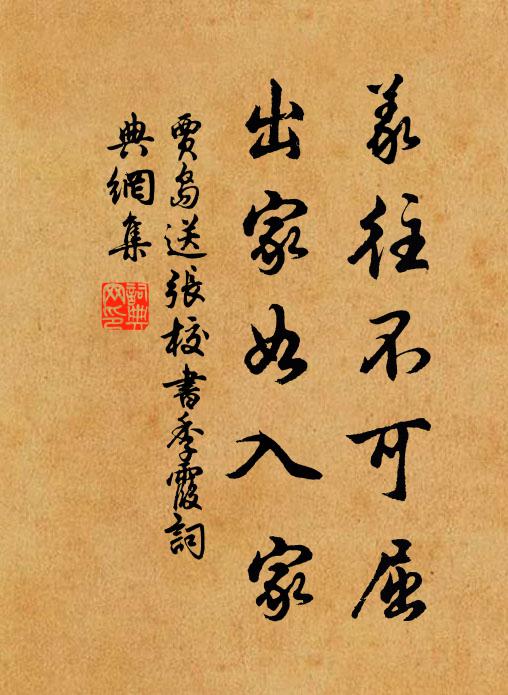 義往不可屈
出家如入家
賈島送張校書季霞詞
典網集
詞典
网印